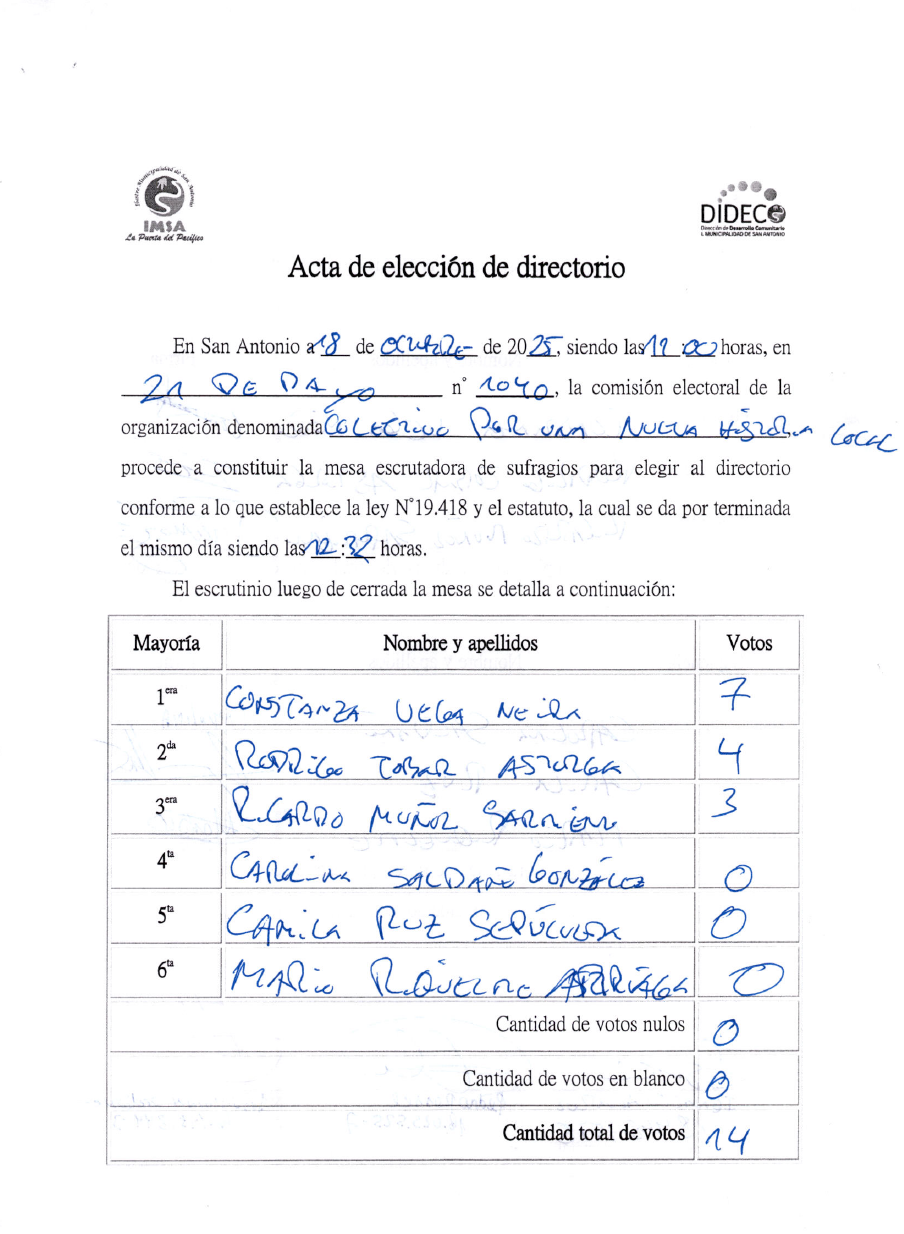 Ilustre Municipalidad de San Antonio
IMSA
La Puerta del Pacífico
DIDECO
Dirección de Desarrollo Comunitario
I. MUNICIPALIDAD DE SAN ANTONIO
Acta de elección de directorio
En San Antonio a 18 de octubre de 2025, siendo las 12:00 horas, en
21 DE MAYO n° 1040, la comisión electoral de la
organización denominada COLECTIVO POR UNA NUEVA HISTORIA LOCAL
procede a constituir la mesa escrutadora de sufragios para elegir al directorio
conforme a lo que establece la ley N°19.418 y el estatuto, la cual se da por terminada
el mismo día siendo las 12:32 horas.
El escrutinio luego de cerrada la mesa se detalla a continuación:
Mayoría Nombre y apellidos Votos
1era CONSTANZA VEGA NEIRA 7
2da RODRIGO TOBAR ASTORGA 4
3era RICARDO MUÑOZ 3
4ta CAROLINA SALDAÑE GONZÁLEZ 0
5ta CAMILA RUZ SEPÚLVEDA 0
6ta MARIO RIQUELME ARRIAGA 0
Cantidad de votos nulos 0
Cantidad de votos en blanco 0
Cantidad total de votos 14